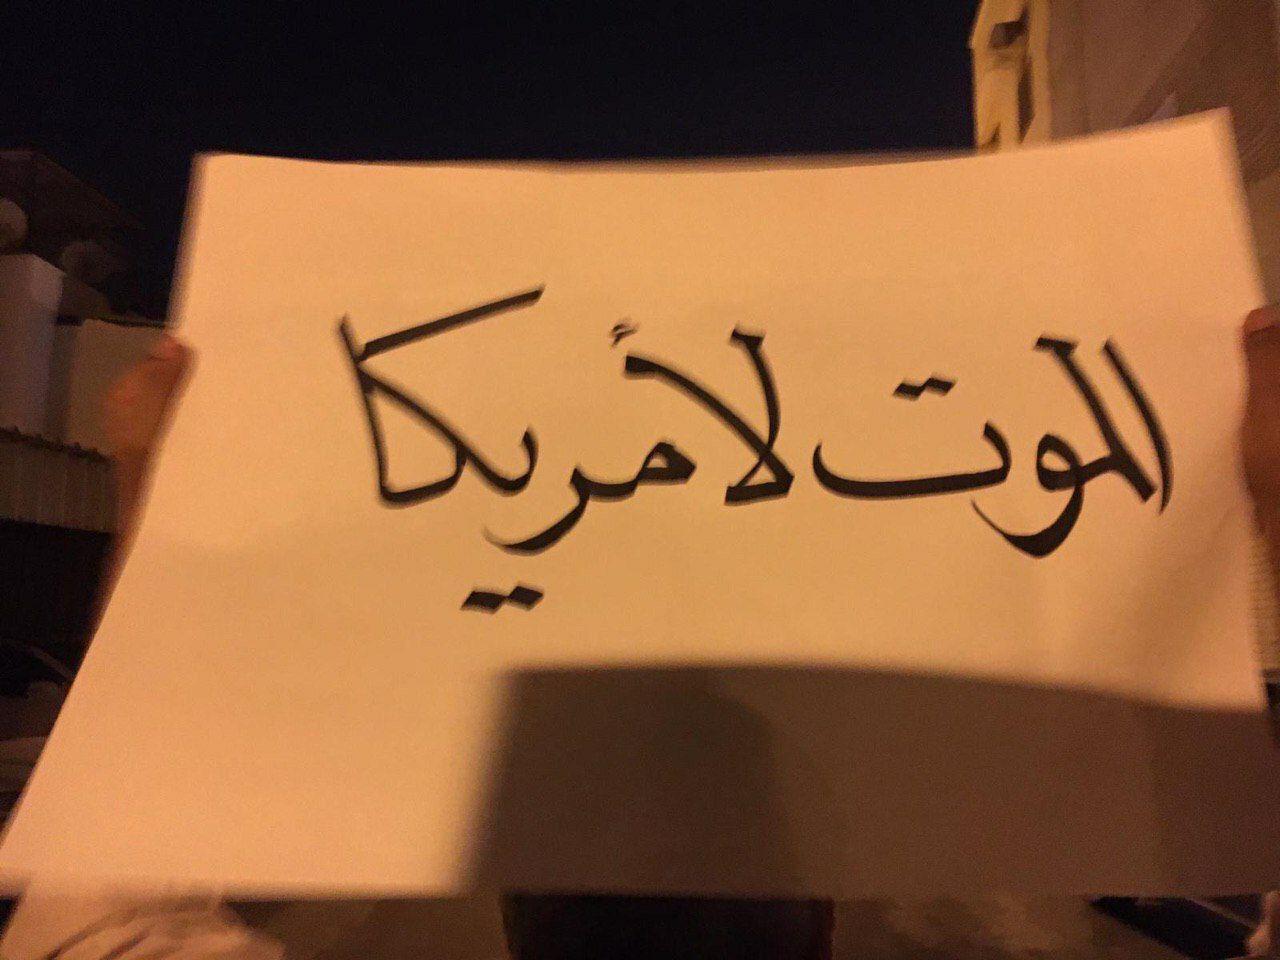 الموت لأمريكا